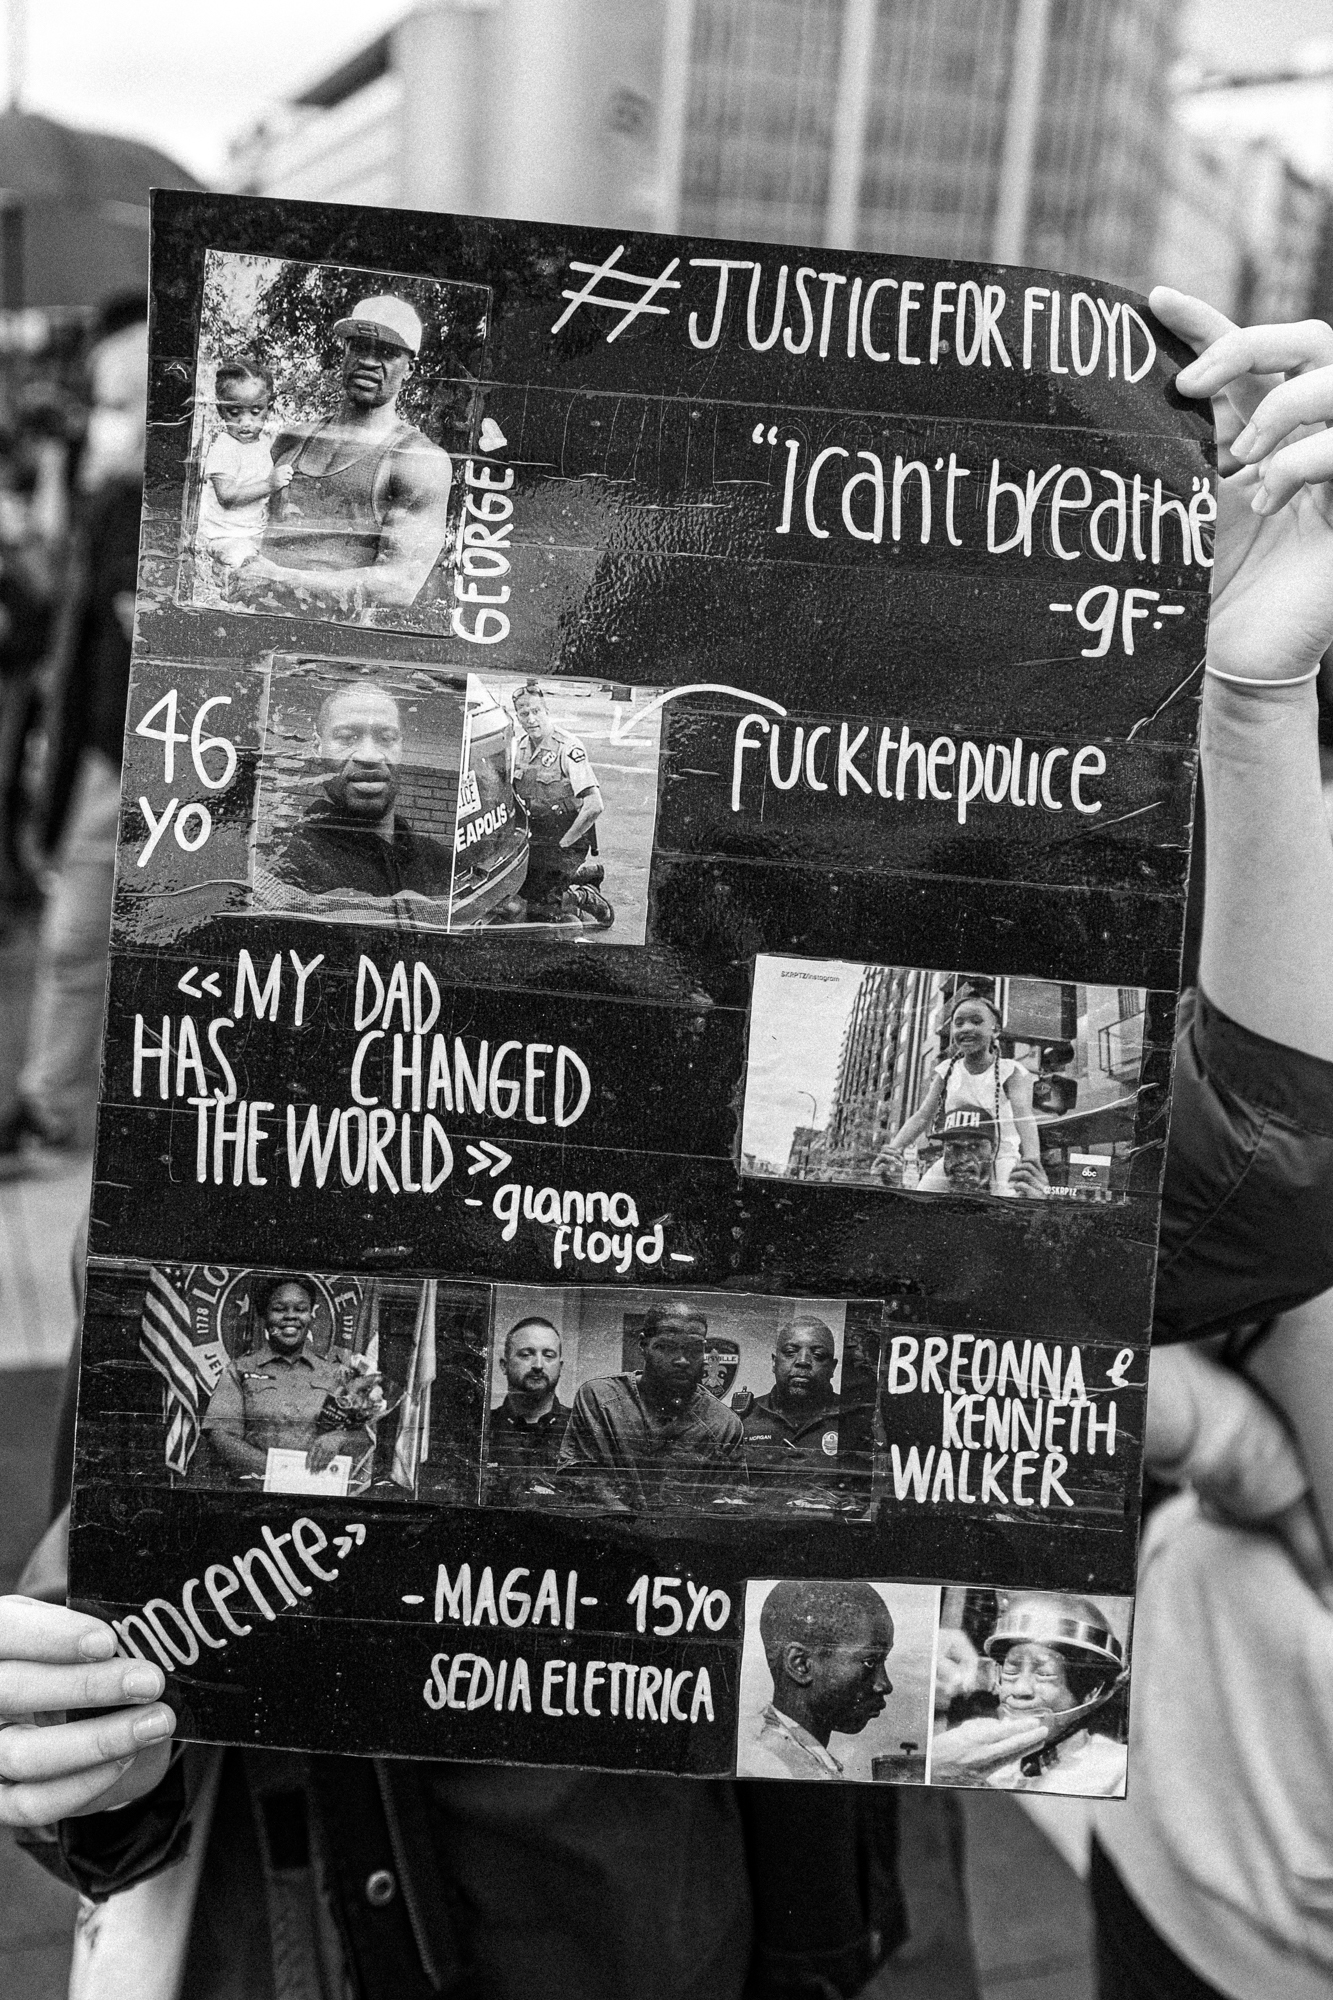 #JUSTICEFOR FLOYD
GEORGE
"I can't breathe"
-GF-
46
yo
fuckthepolice
ICE
EAPOLIS
«MY DAD
HAS CHANGED
THE WORLD»
-gianna
floyd-
SKRPTZ/Instagram
FAITH
abc
@SKRPTZ
1778
1778
JE
BREONNA &
KENNETH
WALKER
MORGAN
nnocente»
-MAGAI- 15yo
SEDIA ELETTRICA